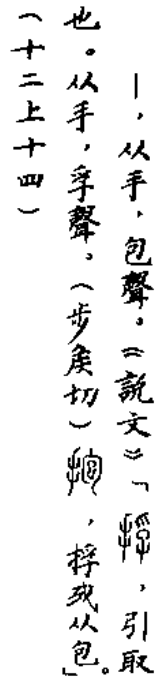 ｜，从手，包聲。《說文》「捊，引取
也。从手，孚聲。（步矦切）抱，捊或从包。」
（十二上十四）